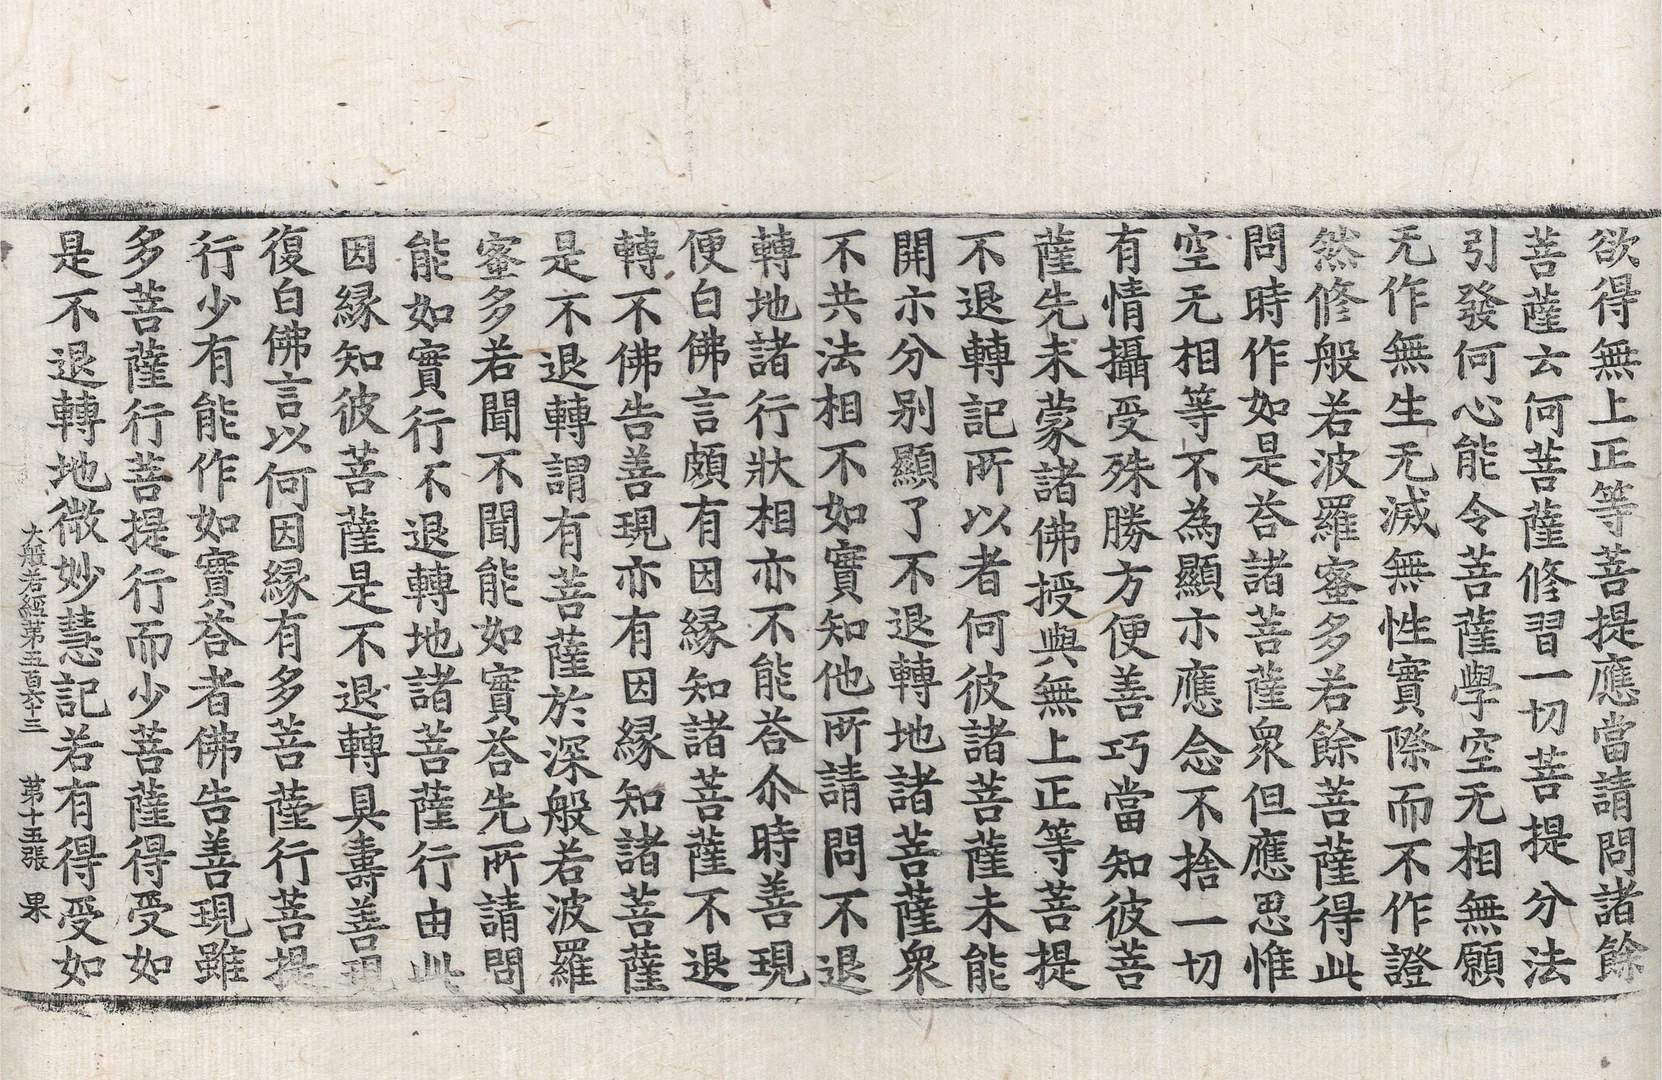 欲得無上正等菩提應當請問諸餘
菩薩云何菩薩修習一切菩提分法
引發何心能令菩薩學空无相無願
无作無生无滅無性實際而不作證
然修般若波羅蜜多若餘菩薩得此
問時作如是荅諸菩薩衆但應思惟
空无相等不為顯示應念不捨一切
有情攝受殊勝方便善巧當知彼菩
薩先未蒙諸佛授與無上正等菩提
不退轉記所以者何彼諸菩薩未能
開示分别顯了不退轉地諸菩薩衆
不共法相不如實知他所請問不退
轉地諸行狀相亦不能荅尒時善現
便白佛言頗有因緣知諸菩薩不退
轉不佛告善現亦有因緣知諸菩薩
是不退轉謂有菩薩於深般若波羅
蜜多若聞不聞能如實荅先所請問
能如實行不退轉地諸菩薩行由此
因緣知彼菩薩是不退轉具壽善現
復白佛言以何因緣有多菩薩行菩提
行少有能作如實荅者佛告善現雖
多菩薩行菩提行而少菩薩得受如
是不退轉地微妙慧記若有得受如
大般若經第五百六十三 第十五張 果